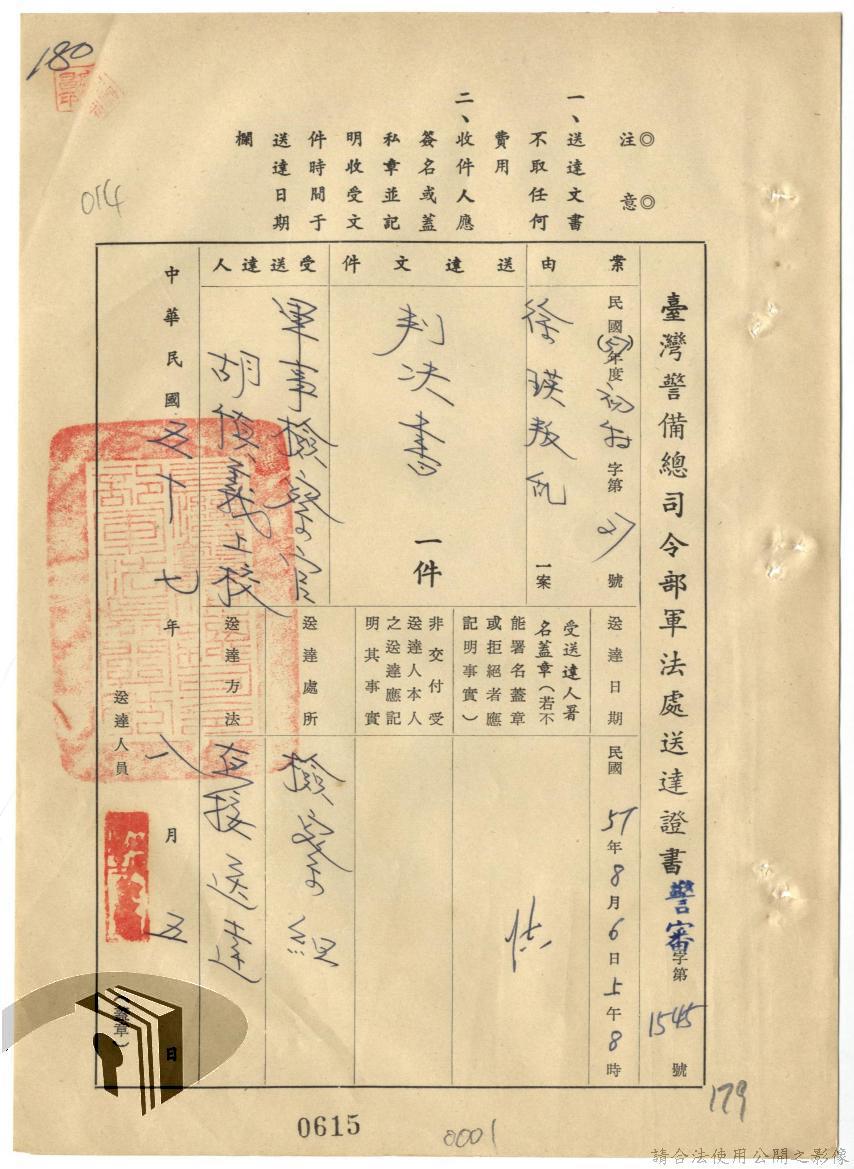 180
014
注意
一、送達文書
不取任何
費用
二、收件人應
簽名或蓋
私章並記
明收受文
件時間于
送達日期
欄
臺灣警備總司令部軍法處送達證書警審字第1545號
案由
民國(57)年度初特字第27號
徐瑛叛乱一案
送達文件
判决書一件
受送達人
軍事檢察官
胡慎義上校
送達日期
民國57年8月6日上午8時
受送達人署
名蓋章(若不
能署名蓋章
或拒絕者應
記明事實)
非交付受
送達人本人
之送達應記
明其事實
送達處所
檢察組
送達方法
直接送達
中華民國五十七年八月五日
送達人員
(蓋章)
179
0615
0001
請合法使用公開之影像